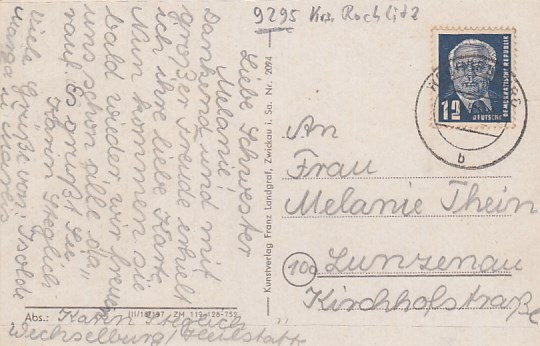 9295 Krs. Rochlitz
Liebe Schwester
Melanie!
Dankend und mit
großer Freude erhielt
ich ihre liebe Karte.
Nun kommen sie
bald wieder, wir freuen
uns schon alle da-
rauf. Es grüßt Sie
Karin Steglich
Viele Grüße von: Isolde
12
DEUTSCHE
DEMOKRATISCHE REPUBLIK
b
An
Frau
Melanie Thein
10a Lunzenau
Kirchhofstraße
Kunstverlag Franz Landgraf, Zwickau i. Sa. Nr. 2094
III/18/197 ZH 119-128-752
Abs.: Karin Steglich
Wechselburg/Heilstätt